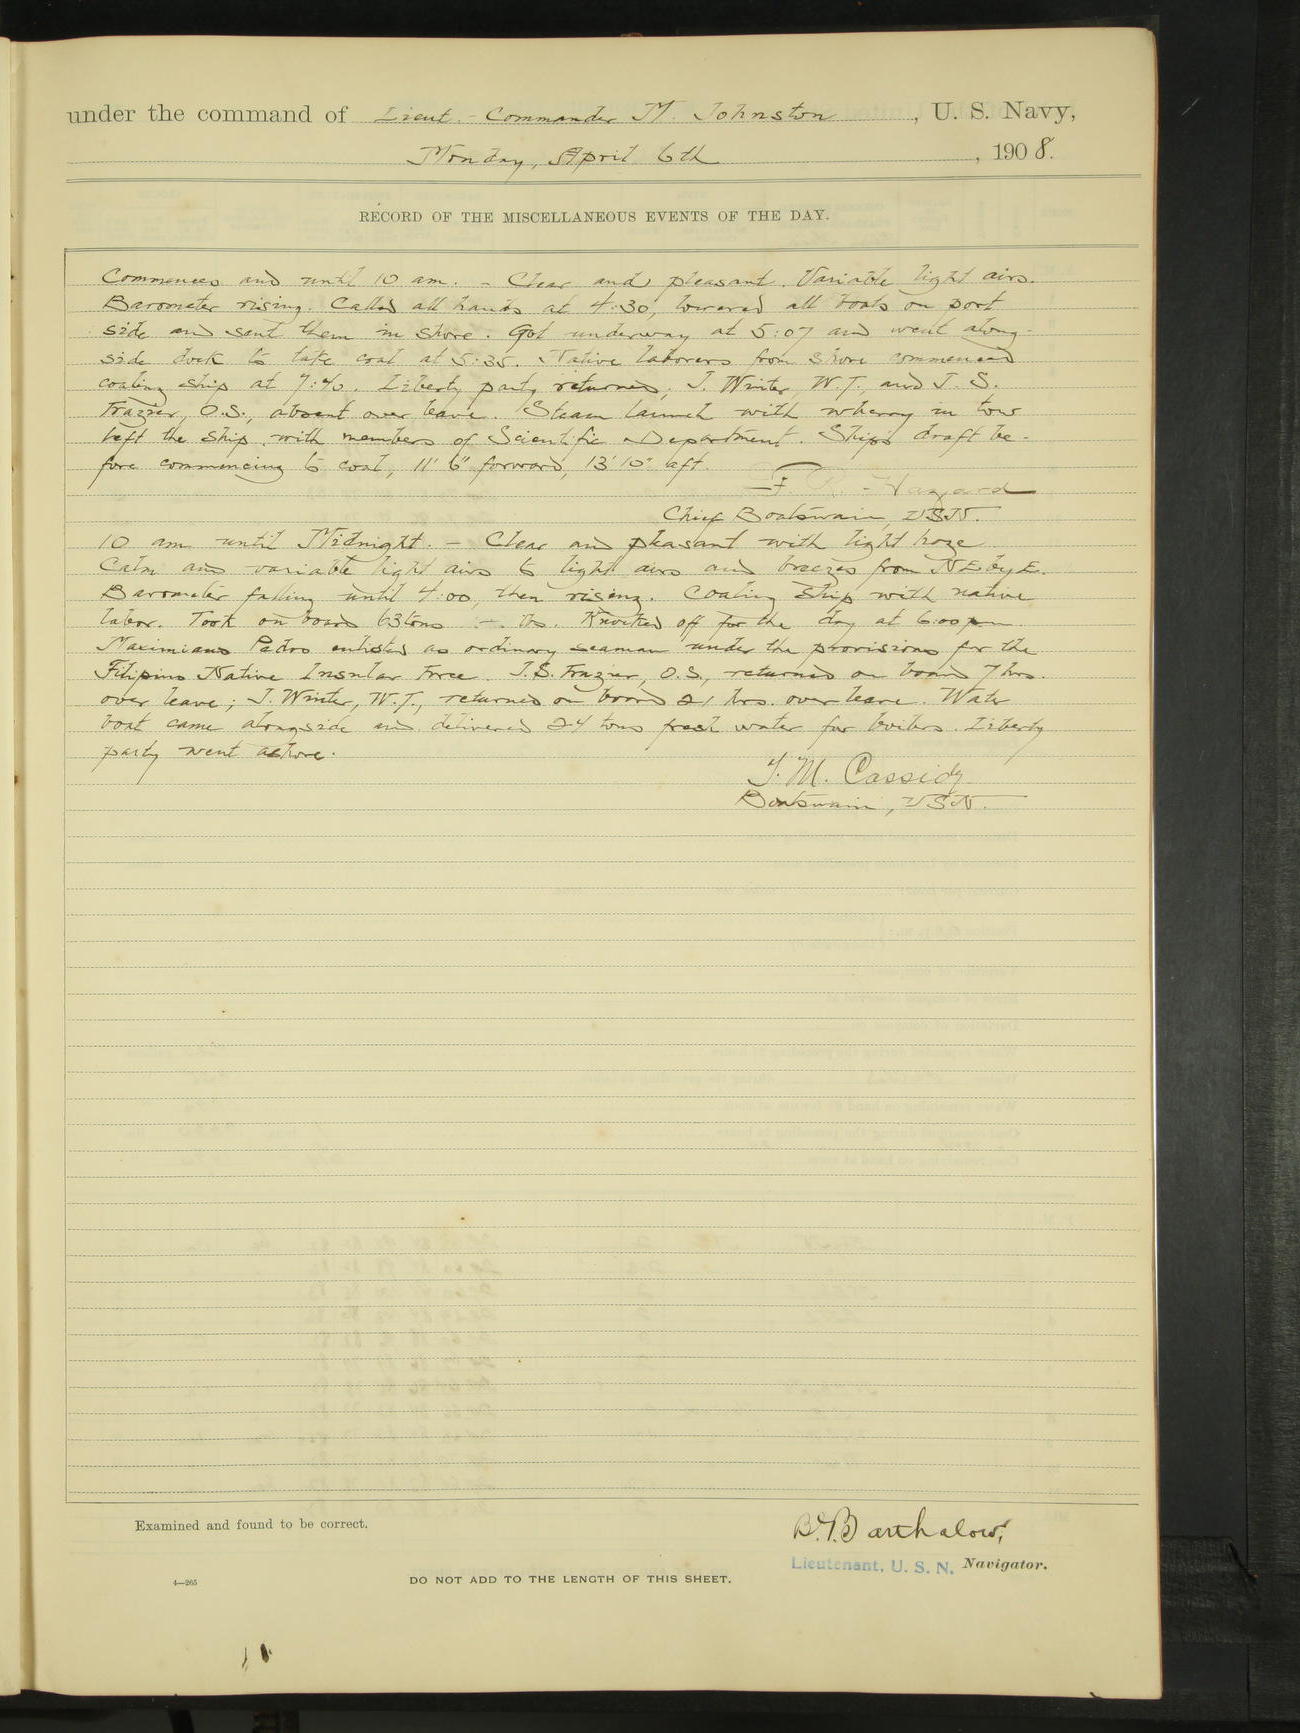 under the command of Lieut.-Commander M. Johnston, U. S. Navy,
Monday, April 6th, 1908.
RECORD OF THE MISCELLANEOUS EVENTS OF THE DAY.
Commences and until 10 am. - Clear and pleasant. Variable light airs.
Barometer rising. Called all hands at 4:30, lowered all boats on port
side and sent them in shore. Got underway at 5:07 and went along-
side dock to take coal at 5:35. Native laborers from shore commenced
coaling ship at 7:40. Liberty party returned, J. Winter, W.T., and J. S.
Frazier, O.S., absent over leave. Steam launch with wherry in tow
left the ship with members of Scientific Department. Ship's draft be-
fore commencing to coal, 11' 6" forward, 13' 10" aft.
F. R. Hazard
Chief Boatswain, USN.
10 am until Midnight. - Clear and pleasant with light haze
Calm and variable light airs to light airs and breezes from NE by E.
Barometer falling until 4:00, then rising. Coaling ship with native
labor. Took on board 63 tons lbs. Knocked off for the day at 6:00 pm
Maximiano Pedro enlisted as ordinary seaman under the provisions for the
Filipino Native Insular Force. J.S. Frazier, O.S., returned on board 7 hrs.
over leave; J. Winter, W.T., returned on board 21 hrs. over leave. Water
boat came alongside and delivered 24 tons fresh water for boilers. Liberty
party went ashore.
T. M. Cassidy
Boatswain, USN.
Examined and found to be correct.
B. B. Barthalow,
Lieutenant, U. S. N. Navigator.
4—265
DO NOT ADD TO THE LENGTH OF THIS SHEET.